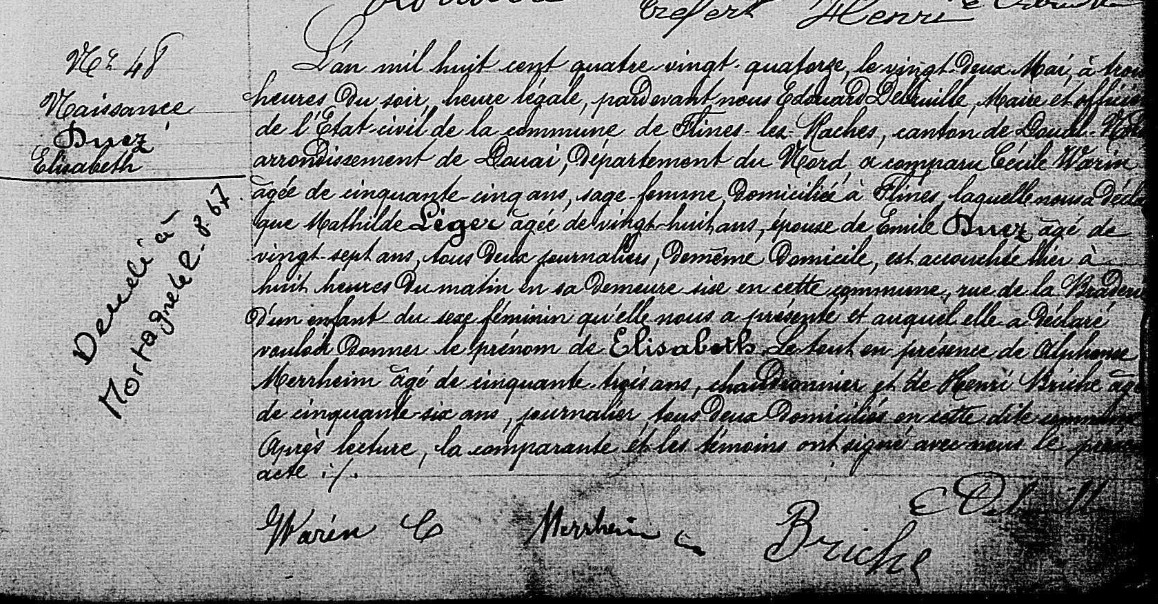 Trefert Henri
Nº 48
Naissance
Duez
Elisabeth
Décédée à
Mortagne le 2-8-67
L'an mil huit cent quatre vingt-quatorze, le vingt deux Mai, à trois
heures du soir, heure légale, pardevant nous Edouard Delville, Maire et officier
de l'Etat-civil de la commune de Flines-les-Raches, canton de Douai-Nord
arrondissement de Douai, Département du Nord, a comparu Cécile Warin
âgée de cinquante cinq ans, sage-femme, domiciliée à Flines, laquelle nous a déclaré
que Mathilde Léger âgée de vingt-huit ans, épouse de Emile Duez âgé de
vingt sept ans, tous deux journaliers, de même domicile, est accouchée hier à
huit heures du matin en sa demeure sise en cette commune, rue de la
d'un enfant du sexe féminin qu'elle nous a présenté et auquel elle a déclaré
vouloir donner le prénom de Elisabeth. Le tout en présence de Alphonse
Merrheim âgé de cinquante-trois ans, chaudronnier et de Henri Briche âgé
de cinquante-six ans, journalier, tous deux domiciliés en cette dite commune
Après lecture, la comparante et les témoins ont signé avec nous le présent
acte ./.
Warin C Merrheim a Briche